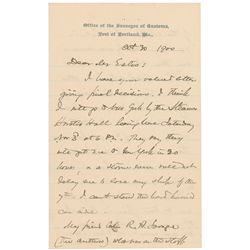 Office of the Surveyor of Customs,
Port of Portland, Me.,
Oct 30 1900
Dear Mr Estes:
I have your valued letter
giving final decisions. I think
I will go to New York by the Steamer
Horatio Hall leaving here Saturday
Nov 3 at 6 P.M. They say they
will get me to New York in 20
hours, a storm were
delay me to lose my ship of the
7th. I can't stand the hundred
car ride.
My friend R. H.
(The author) on the staff